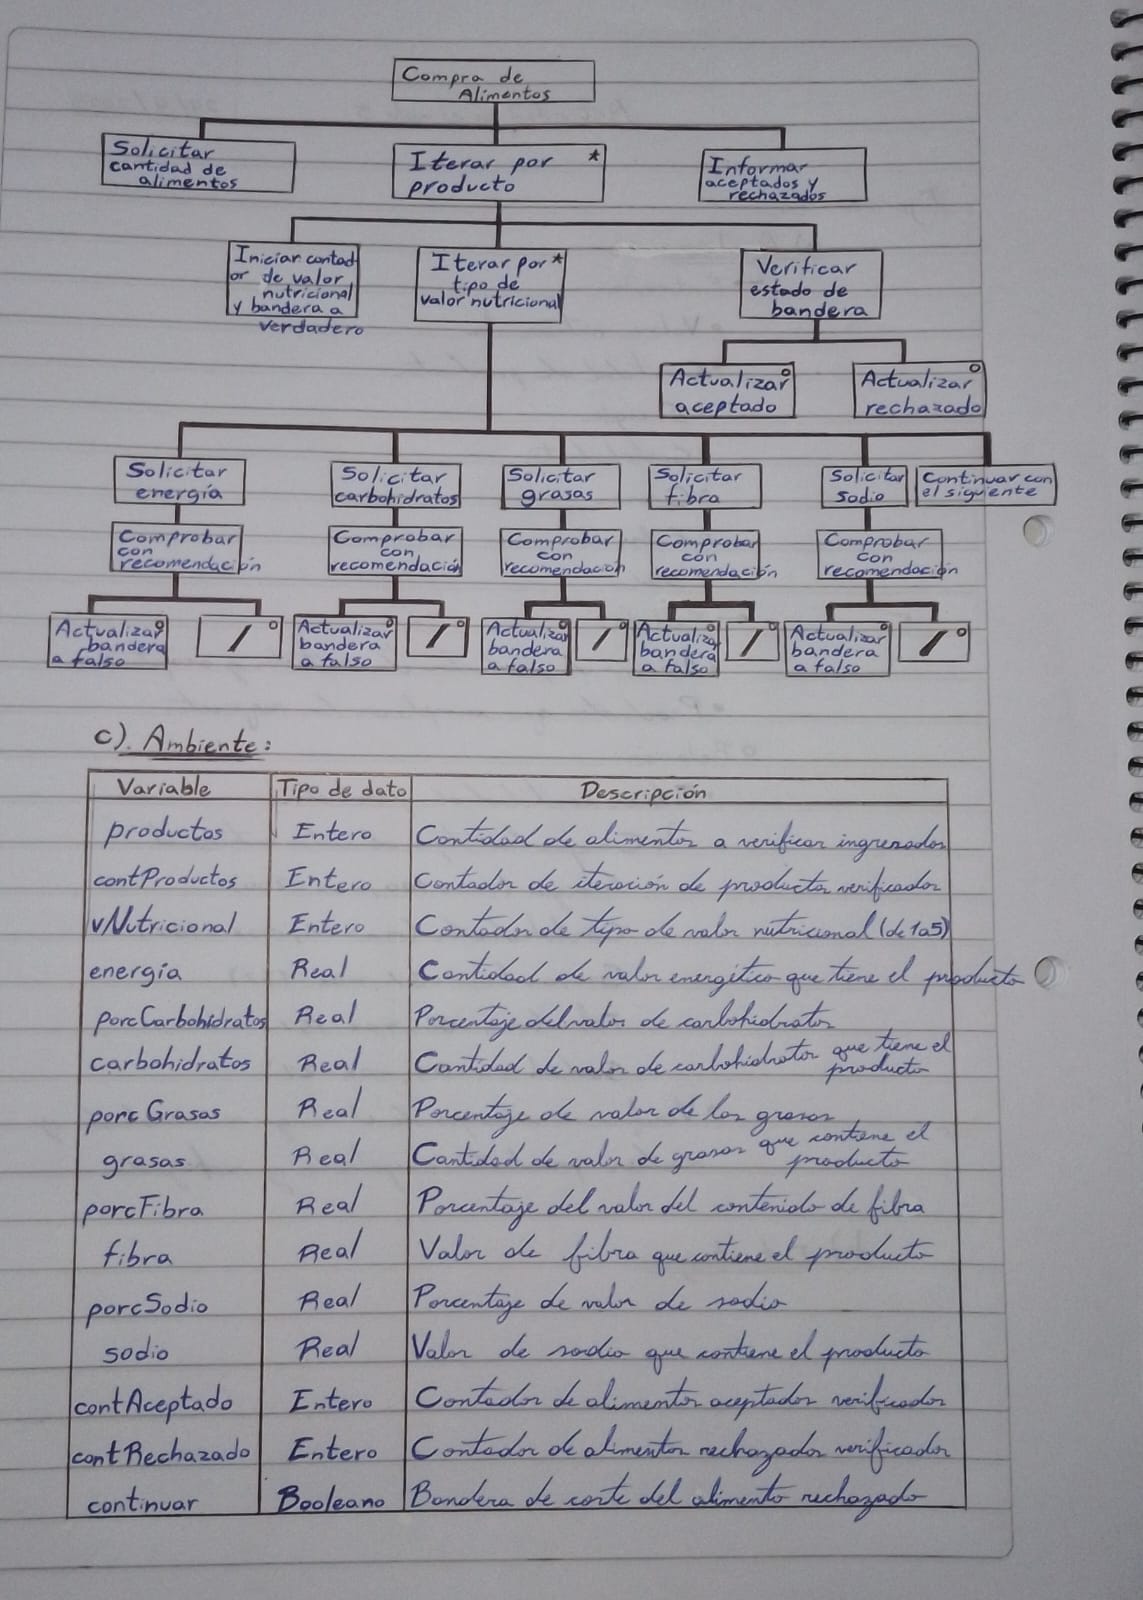 Compra de
Alimentos
Solicitar
cantidad de
alimentos
Iterar por *
producto
Informar
aceptados y
rechazados
Iniciar contad
or de valor
nutricional
y bandera a
verdadero
Iterar por *
tipo de
valor nutricional
Verificar
estado de
bandera
Actualizar
aceptado
Actualizar
rechazado
Solicitar
energía
Solicitar
carbohidratos
Solicitar
grasas
Solicitar
fibra
Solicitar
Sodio
Continuar con
el siguiente
Comprobar
con
recomendación
Comprobar
con
recomendación
Comprobar
con
recomendación
Comprobar
con
recomendación
Comprobar
con
recomendación
Actualizar
bandera
a falso
Actualizar
bandera
a falso
Actualizar
bandera
a falso
Actualizar
bandera
a falso
Actualizar
bandera
a falso
c). Ambiente:
Variable Tipo de dato Descripción
productos Entero Cantidad de alimentos a verificar ingresados
contProductos Entero Contador de iteración de productos verificados
vNutricional Entero Contador de tipo de valor nutricional (de 1 a 5)
energía Real Cantidad de valor energético que tiene el producto
porcCarbohidratos Real Porcentaje del valor de carbohidratos
carbohidratos Real Cantidad de valor de carbohidratos que tiene el
producto
porcGrasas Real Porcentaje de valor de las grasas
grasas Real Cantidad de valor de grasas que contiene el
producto
porcFibra Real Porcentaje del valor del contenido de fibra
fibra Real Valor de fibra que contiene el producto
porcSodio Real Porcentaje de valor de sodio
sodio Real Valor de sodio que contiene el producto
contAceptado Entero Contador de alimentos aceptados verificados
contRechazado Entero Contador de alimentos rechazados verificados
continuar Booleano Bandera de corte del alimento rechazado